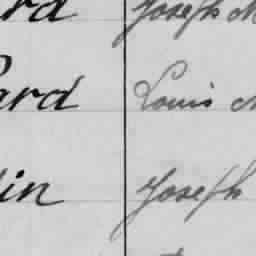 rd Joseph M
ard Louis
in Joseph